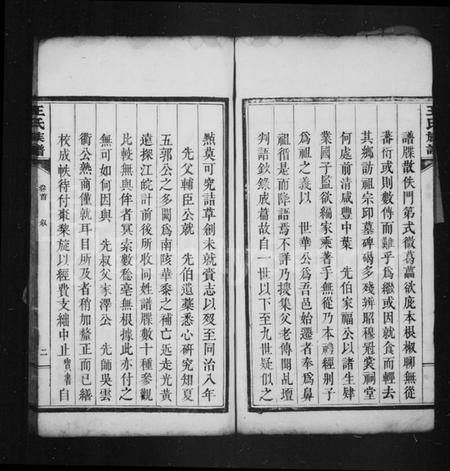 譜牒散佚門第式微葛藟欲庇本根椒聊無從
蕃衍或則數傳而難乎為繼或因就食而輕去
其鄉訪祖宗邱墓碑碣多殘辨昭穆冠裳祠堂
何處前清咸豐中葉 先伯家福公以諸生肄
業國子監欲編家乘著手無從乃本禮經別子
為祖之義以 世華公為吾邑始遷者奉為鼻
祖循是而降語焉不詳乃搜集父老傳聞乩壇
判語欽錄成篇故自一世以下至九世疑似之
點莫可究詰草創未就賫志以歿至同治八年
先父輔臣公就 先伯遺藁悉心研究知夏
五郭公之多闕為南陔華黍之補亡迭走光黃
遠探江皖計前後所收同姓譜牒數十種參觀
比較無與侔者冥索數稔毫無根據此亦付之
無可如何因與 先叔父家澤公 先師吳雲
衢公熟商僅就耳目所及者稍加釐正而已繕
校成帙待付棗棃旋以經費支絀中止寶書自
王氏族譜
卷首 敘
二
王氏族譜